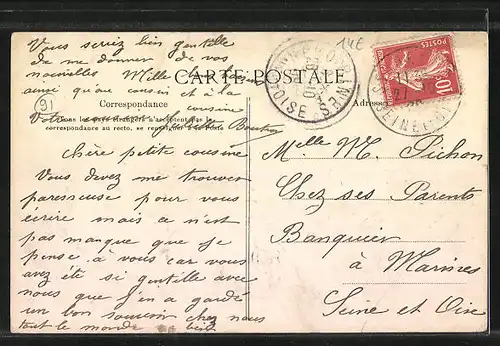 Vous seriez bien gentille
de me donner de vos
nouvelles Mille
ainsi qu'au cousin et à la
cousine
Votre
CARTE POSTALE
Correspondance
Tous les
correspondance au recto, se
Adresse
91
14E
POSTES
10
Chère petite cousine
Vous devez me trouver
paresseuse pour vous
écrire mais ce n'est
pas manque que je
pense à vous car vous
avez été si gentille avec
nous que j'en a gardé
un bon souvenir chez nous
tout le monde
Melle M. Pichon
Chez ses Parents
Banquier
à Marines
Seine et Oise